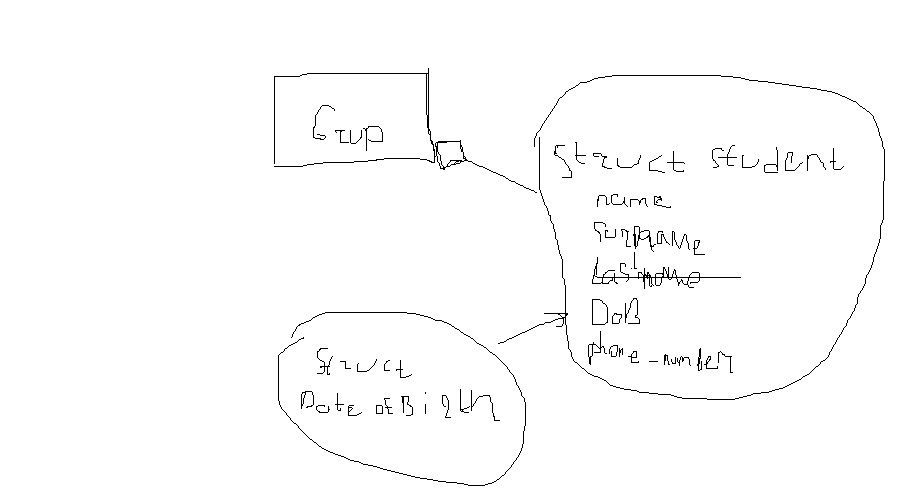 Grup
Struct Student
name
Surname
Lastname
DoB
phone_number
Struct
Date of Birth